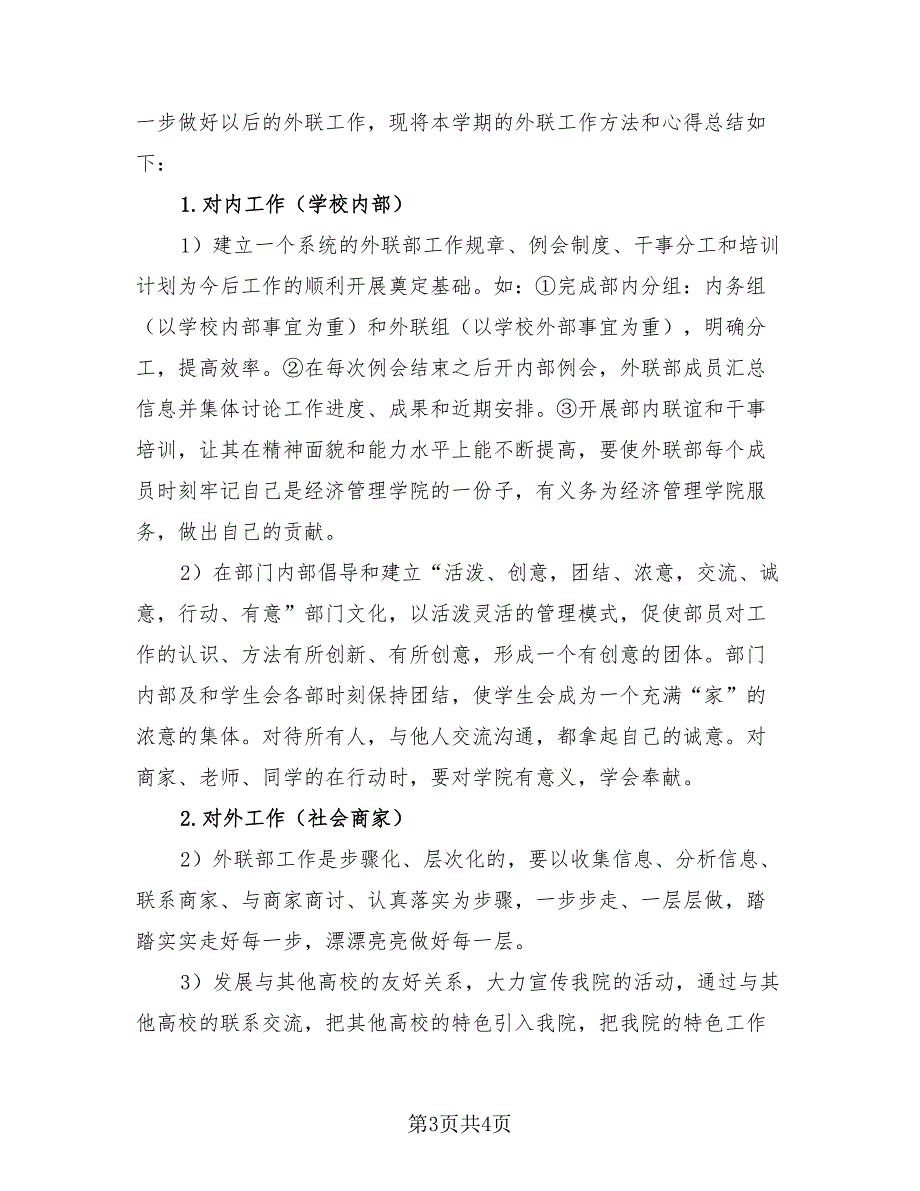 一步做好以后的外联工作，现将本学期的外联工作方法和心得总结如
下：
1.对内工作（学校内部）
1）建立一个系统的外联部工作规章、例会制度、干事分工和培训
计划为今后工作的顺利开展奠定基础。如：①完成部内分组：内务组
（以学校内部事宜为重）和外联组（以学校外部事宜为重），明确分
工，提高效率。②在每次例会结束之后开内部例会，外联部成员汇总
信息并集体讨论工作进度、成果和近期安排。③开展部内联谊和干事
培训，让其在精神面貌和能力水平上能不断提高，要使外联部每个成
员时刻牢记自己是经济管理学院的一份子，有义务为经济管理学院服
务，做出自己的贡献。
2）在部门内部倡导和建立“活泼、创意，团结、浓意，交流、诚
意，行动、有意”部门文化，以活泼灵活的管理模式，促使部员对工
作的认识、方法有所创新、有所创意，形成一个有创意的团体。部门
内部及和学生会各部时刻保持团结，使学生会成为一个充满“家”的
浓意的集体。对待所有人，与他人交流沟通，都拿起自己的诚意。对
商家、老师、同学的在行动时，要对学院有意义，学会奉献。
2.对外工作（社会商家）
2）外联部工作是步骤化、层次化的，要以收集信息、分析信息、
联系商家、与商家商讨、认真落实为步骤，一步步走、一层层做，踏
踏实实走好每一步，漂漂亮亮做好每一层。
3）发展与其他高校的友好关系，大力宣传我院的活动，通过与其
他高校的联系交流，把其他高校的特色引入我院，把我院的特色工作
第3页共4页